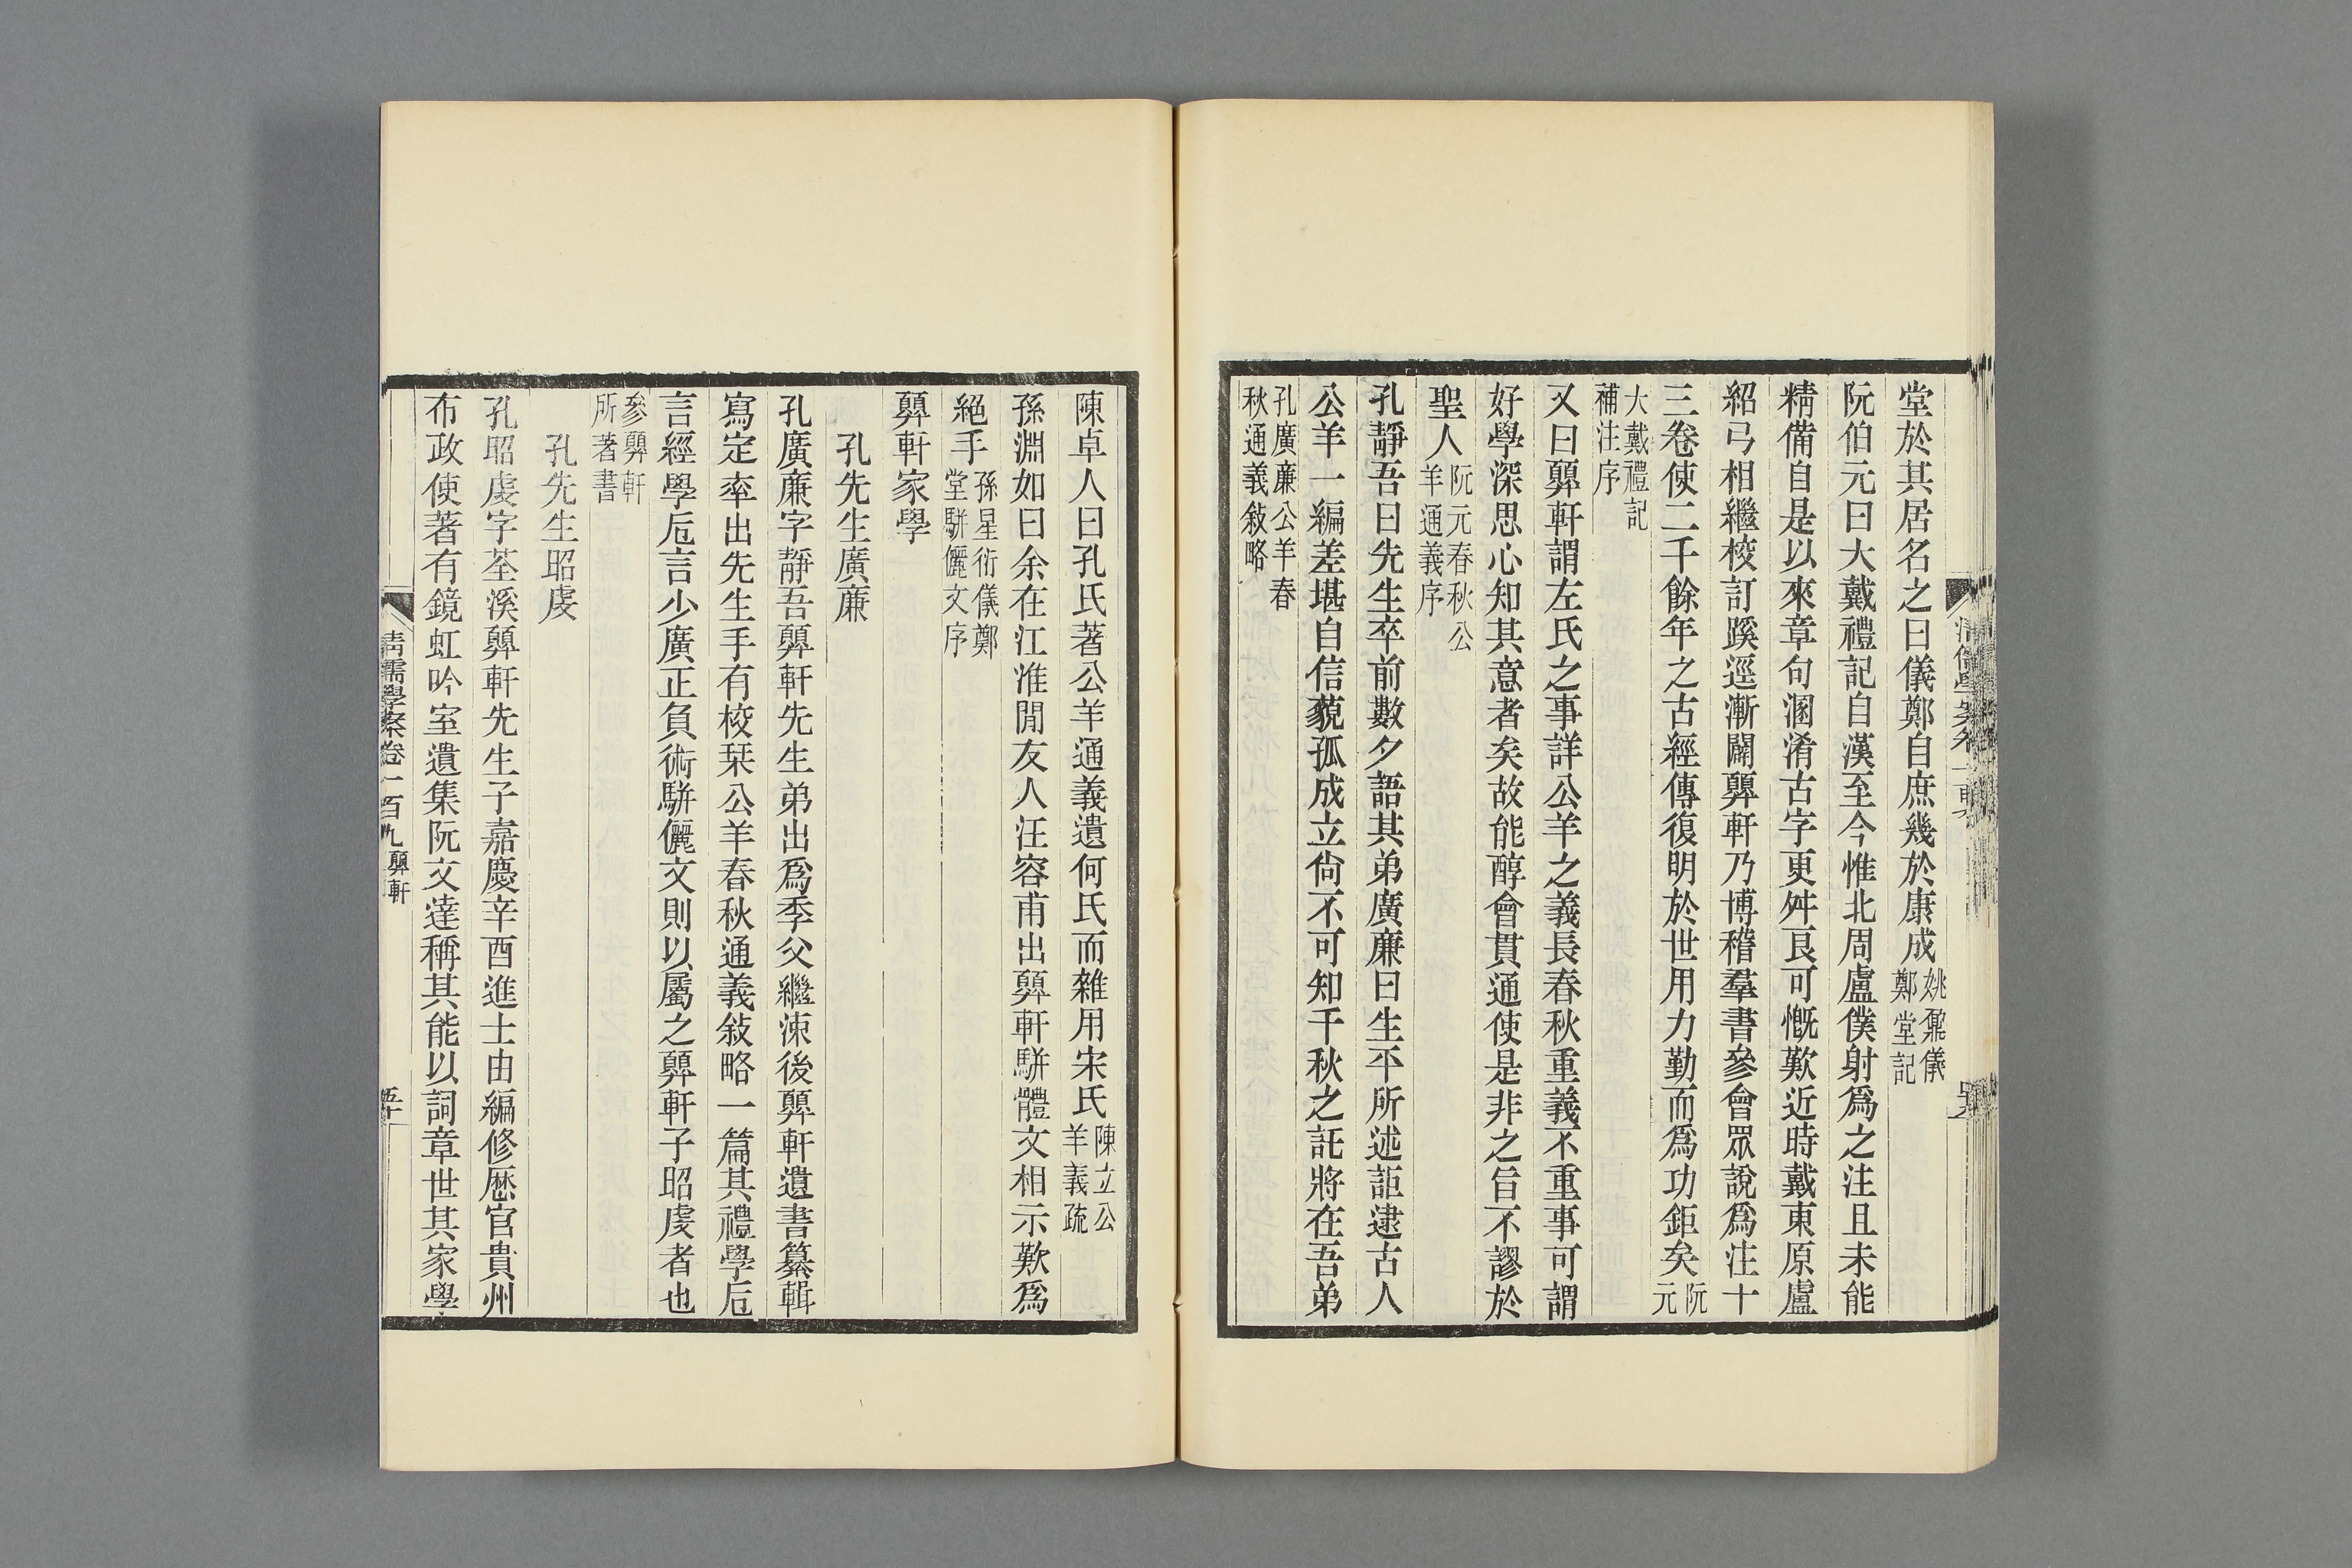 堂於其居名之曰儀鄭自庶幾於康成姚鼐儀鄭堂記
阮伯元曰大戴禮記自漢至今惟北周盧僕射爲之注且未能
精備自是以來章句溷淆古字更舛良可慨歎近時戴東原盧
紹弓相繼校訂蹊逕漸闢顨軒乃博稽羣書參會眾說爲注十
三卷使二千餘年之古經傳復明於世用力勤而爲功鉅矣阮元
大戴禮記補注序
又曰顨軒謂左氏之事詳公羊之義長春秋重義不重事可謂
好學深思心知其意者矣故能醇會貫通使是非之旨不謬於
聖人阮元春秋公羊通義序
孔靜吾曰先生卒前數夕語其弟廣廉曰生平所述詎逮古人
公羊一編差堪自信藐孤成立尙不可知千秋之託將在吾弟
孔廣廉公羊春秋通義敍略
陳卓人曰孔氏著公羊通義遺何氏而雜用宋氏陳立公羊義疏
孫淵如曰余在江淮閒友人汪容甫出顨軒駢體文相示歎爲
絕手孫星衍儀鄭堂駢儷文序
顨軒家學
孔先生廣廉
孔廣廉字靜吾顨軒先生弟出爲季父繼涑後顨軒遺書纂輯
寫定率出先生手有校栞公羊春秋通義敍略一篇其禮學卮
言經學卮言少廣正負術駢儷文則以屬之顨軒子昭虔者也
參顨軒所著書
孔先生昭虔
孔昭虔字荃溪顨軒先生子嘉慶辛酉進士由編修歷官貴州
布政使著有鏡虹吟室遺集阮文達稱其能以詞章世其家學
清儒學案卷一百九 顨軒